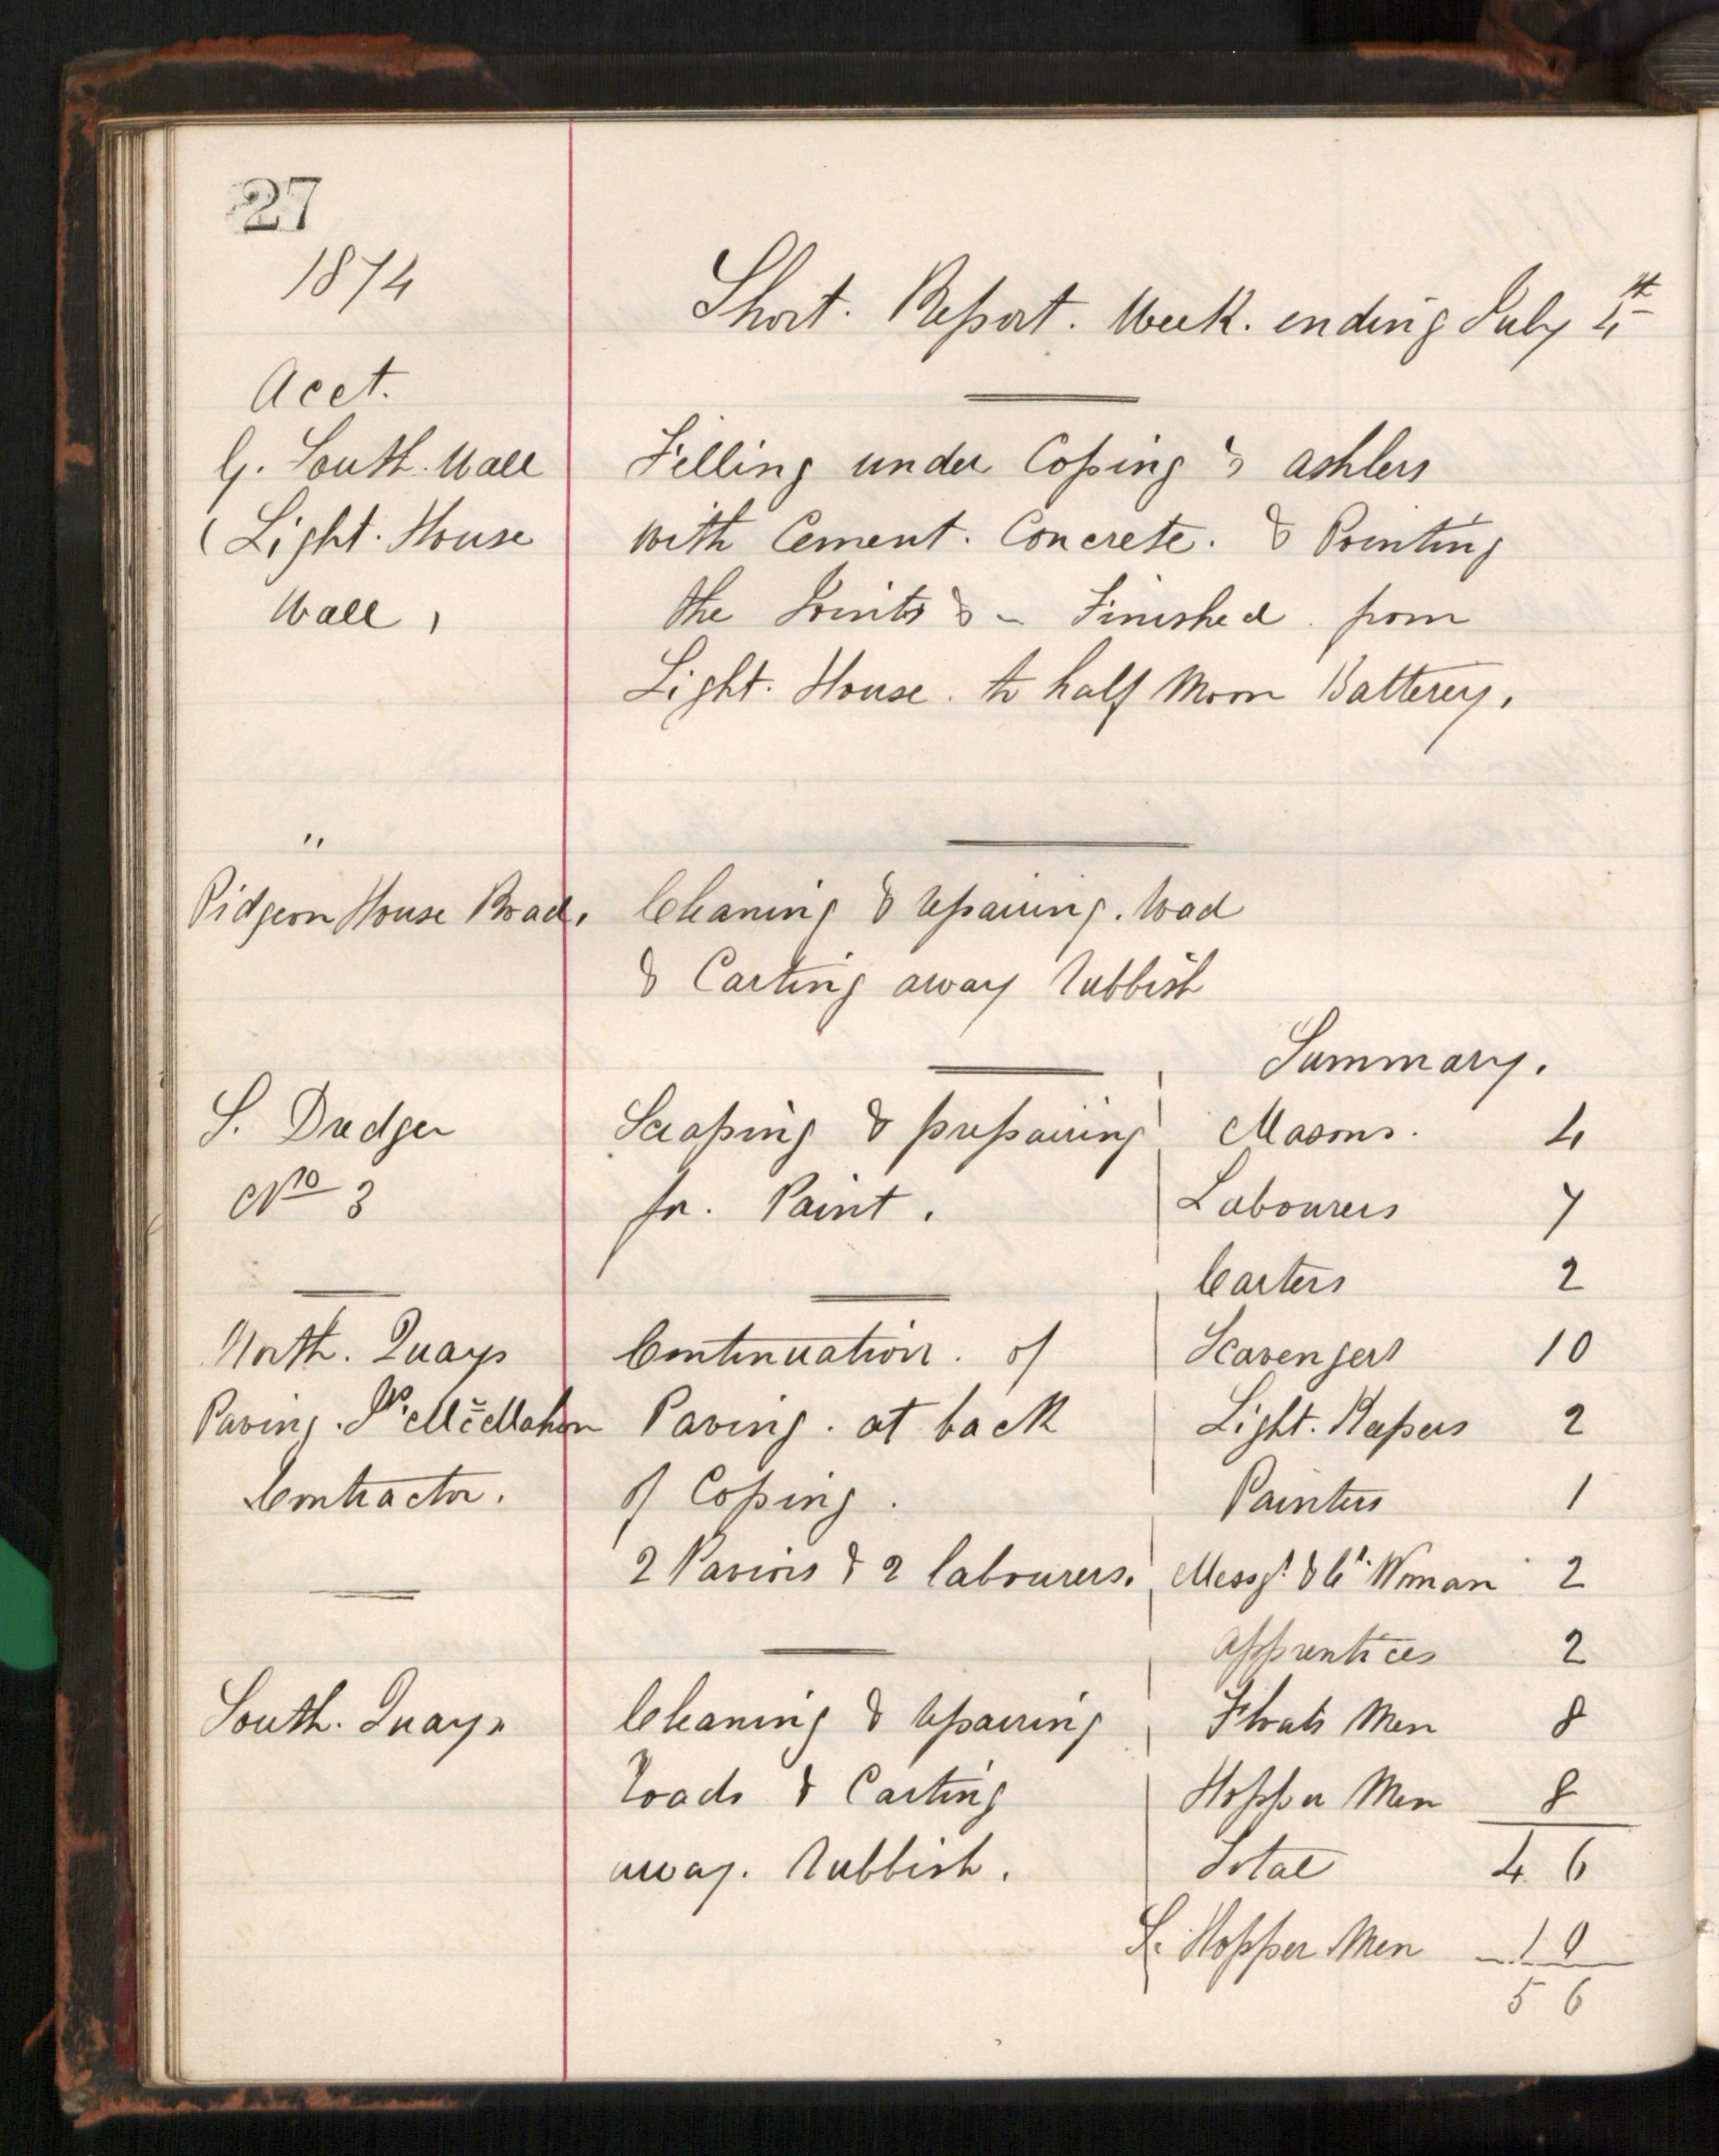 27
1874
Short. Report. Week. ending July 4th
Acct.
G. South. Wall
Filling under Coping & ashlers
(Light. House
with Cement. Concrete. & Pointing
Wall,
the Joints & - Finished. from
Light. House. to half Moon Battery.
"
Pidgeon House Road.
Cleaning & repairing. road
& Carting away rubbish
Summary.
S. Dredger
Scraping & prepairing
Masons. 4
No 3
for. Paint.
Labourers 7
Carters 2
North. Quays
Continuation. of
Scavengers 10
Paving. McMahon
Paving. at back
Light. Keepers 2
Contractor.
of Coping.
Painters 1
2 Paviors & 2 labourers.
Messgr. & Cg. Woman 2
apprentices 2
South. Quays
Cleaning & repairing
Floats Men 8
roads & Carting
Hopper Men 8
away. rubbish.
Total 46
S. Hopper Men 10
56